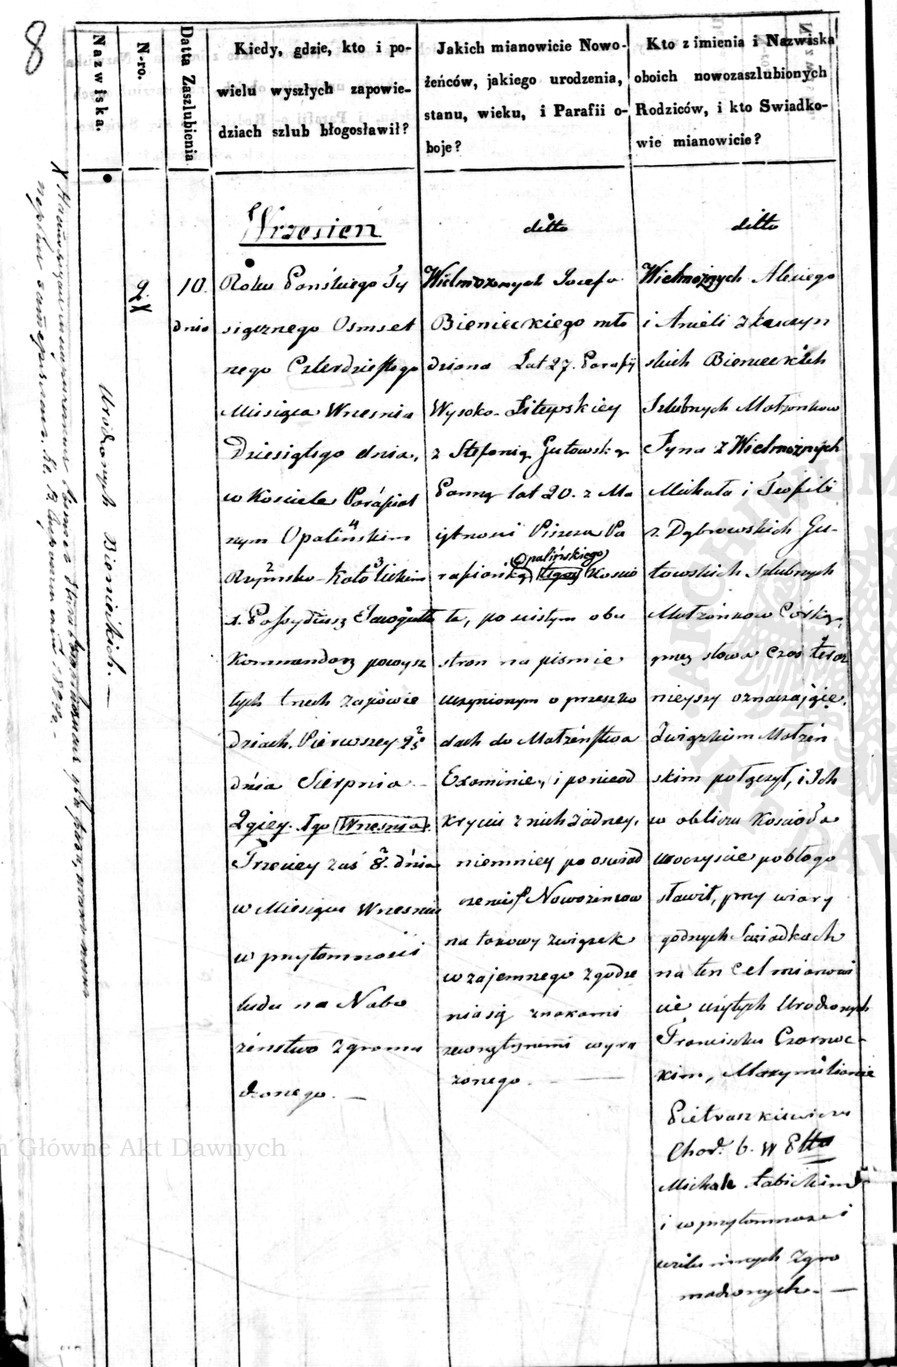 8
Nazwiska.
N-ro.
Datta Zaszlubienia
Kiedy, gdzie, kto i po-
wielu wyszłych zapowie-
dziach szlub błogosławił?
Jakich mianowicie Nowo-
żeńców, jakiego urodzenia,
stanu, wieku, i Parafii o-
boje?
Kto z imienia i Nazwiska
oboich nowozaszlubionych
Rodziców, i kto Swiadko-
wie mianowicie?
Urodzonych Bienieckich.
2.
X
10.
dnia
Wrzesień
Roku Pańskiego Ty
siącznego Osmset
nego Czterdziestego
Miesiąca Wresnia
Dziesiątego dnia,
w Kosciele Parafial
nym Opalińskim
Rzymsko-Katolickim
X.
Kommendarz powysz
łych trzech zapowie
dziach, Pierwszey 25
dnia Sierpnia
2giey 1go Wresnia
Trzeciey zaś 8. dnia
w Miesiącu Wresniu
w przytomności
ludu na Nabo
żeństwo zgroma
dzonego.
ditto
Wielmożonych Jozefa
Bienieckiego mło
dziana Lat 27. Parafij
Wysoko-Litewskiey
z Stefanią Gutowską
Panną lat 20. z Ma
iętności Piszcza Pa
rafianką Opalińskiego Koscio
ła, po scisłym obu
stron na pismie
uczynionym o przeszko
dach do Małżeństwa
Examinie, i ponieod
kryciu z nich żadney,
niemniey po oswiad
czeniu Nowożencow
na takowy związek
wzajemnego zgodze
nia się znakami
zewnętrznemi wyra
żonego.
ditto
Wielmożnych Alexego
i Anieli z
skich Bienieckich
Szlubnych Małżonkow
Syna z Wielmożnych
Michała i Teofili
z Dąbrowskich Gu-
towskich Szlubnych
Małżonkow Corką,
przez słowa czas teraz
nieyszy oznaczające
Związkiem Małżeń
skim połączył, i Ich
w obliczu Kosciola
uroczyscie pobłogo
sławił, przy wiary
godnych Swiadkach
na ten cel mianowi
cie użytych Urodzonych
Franciszku Czarnoc-
kim, Maxymilianie
Pietraszkiewiczu
Chor. b. W
Michale Łabickim
i w przytomnosci
wielu innych zgro
madzonych.
Główne Akt Dawnych
ARCHIWUM